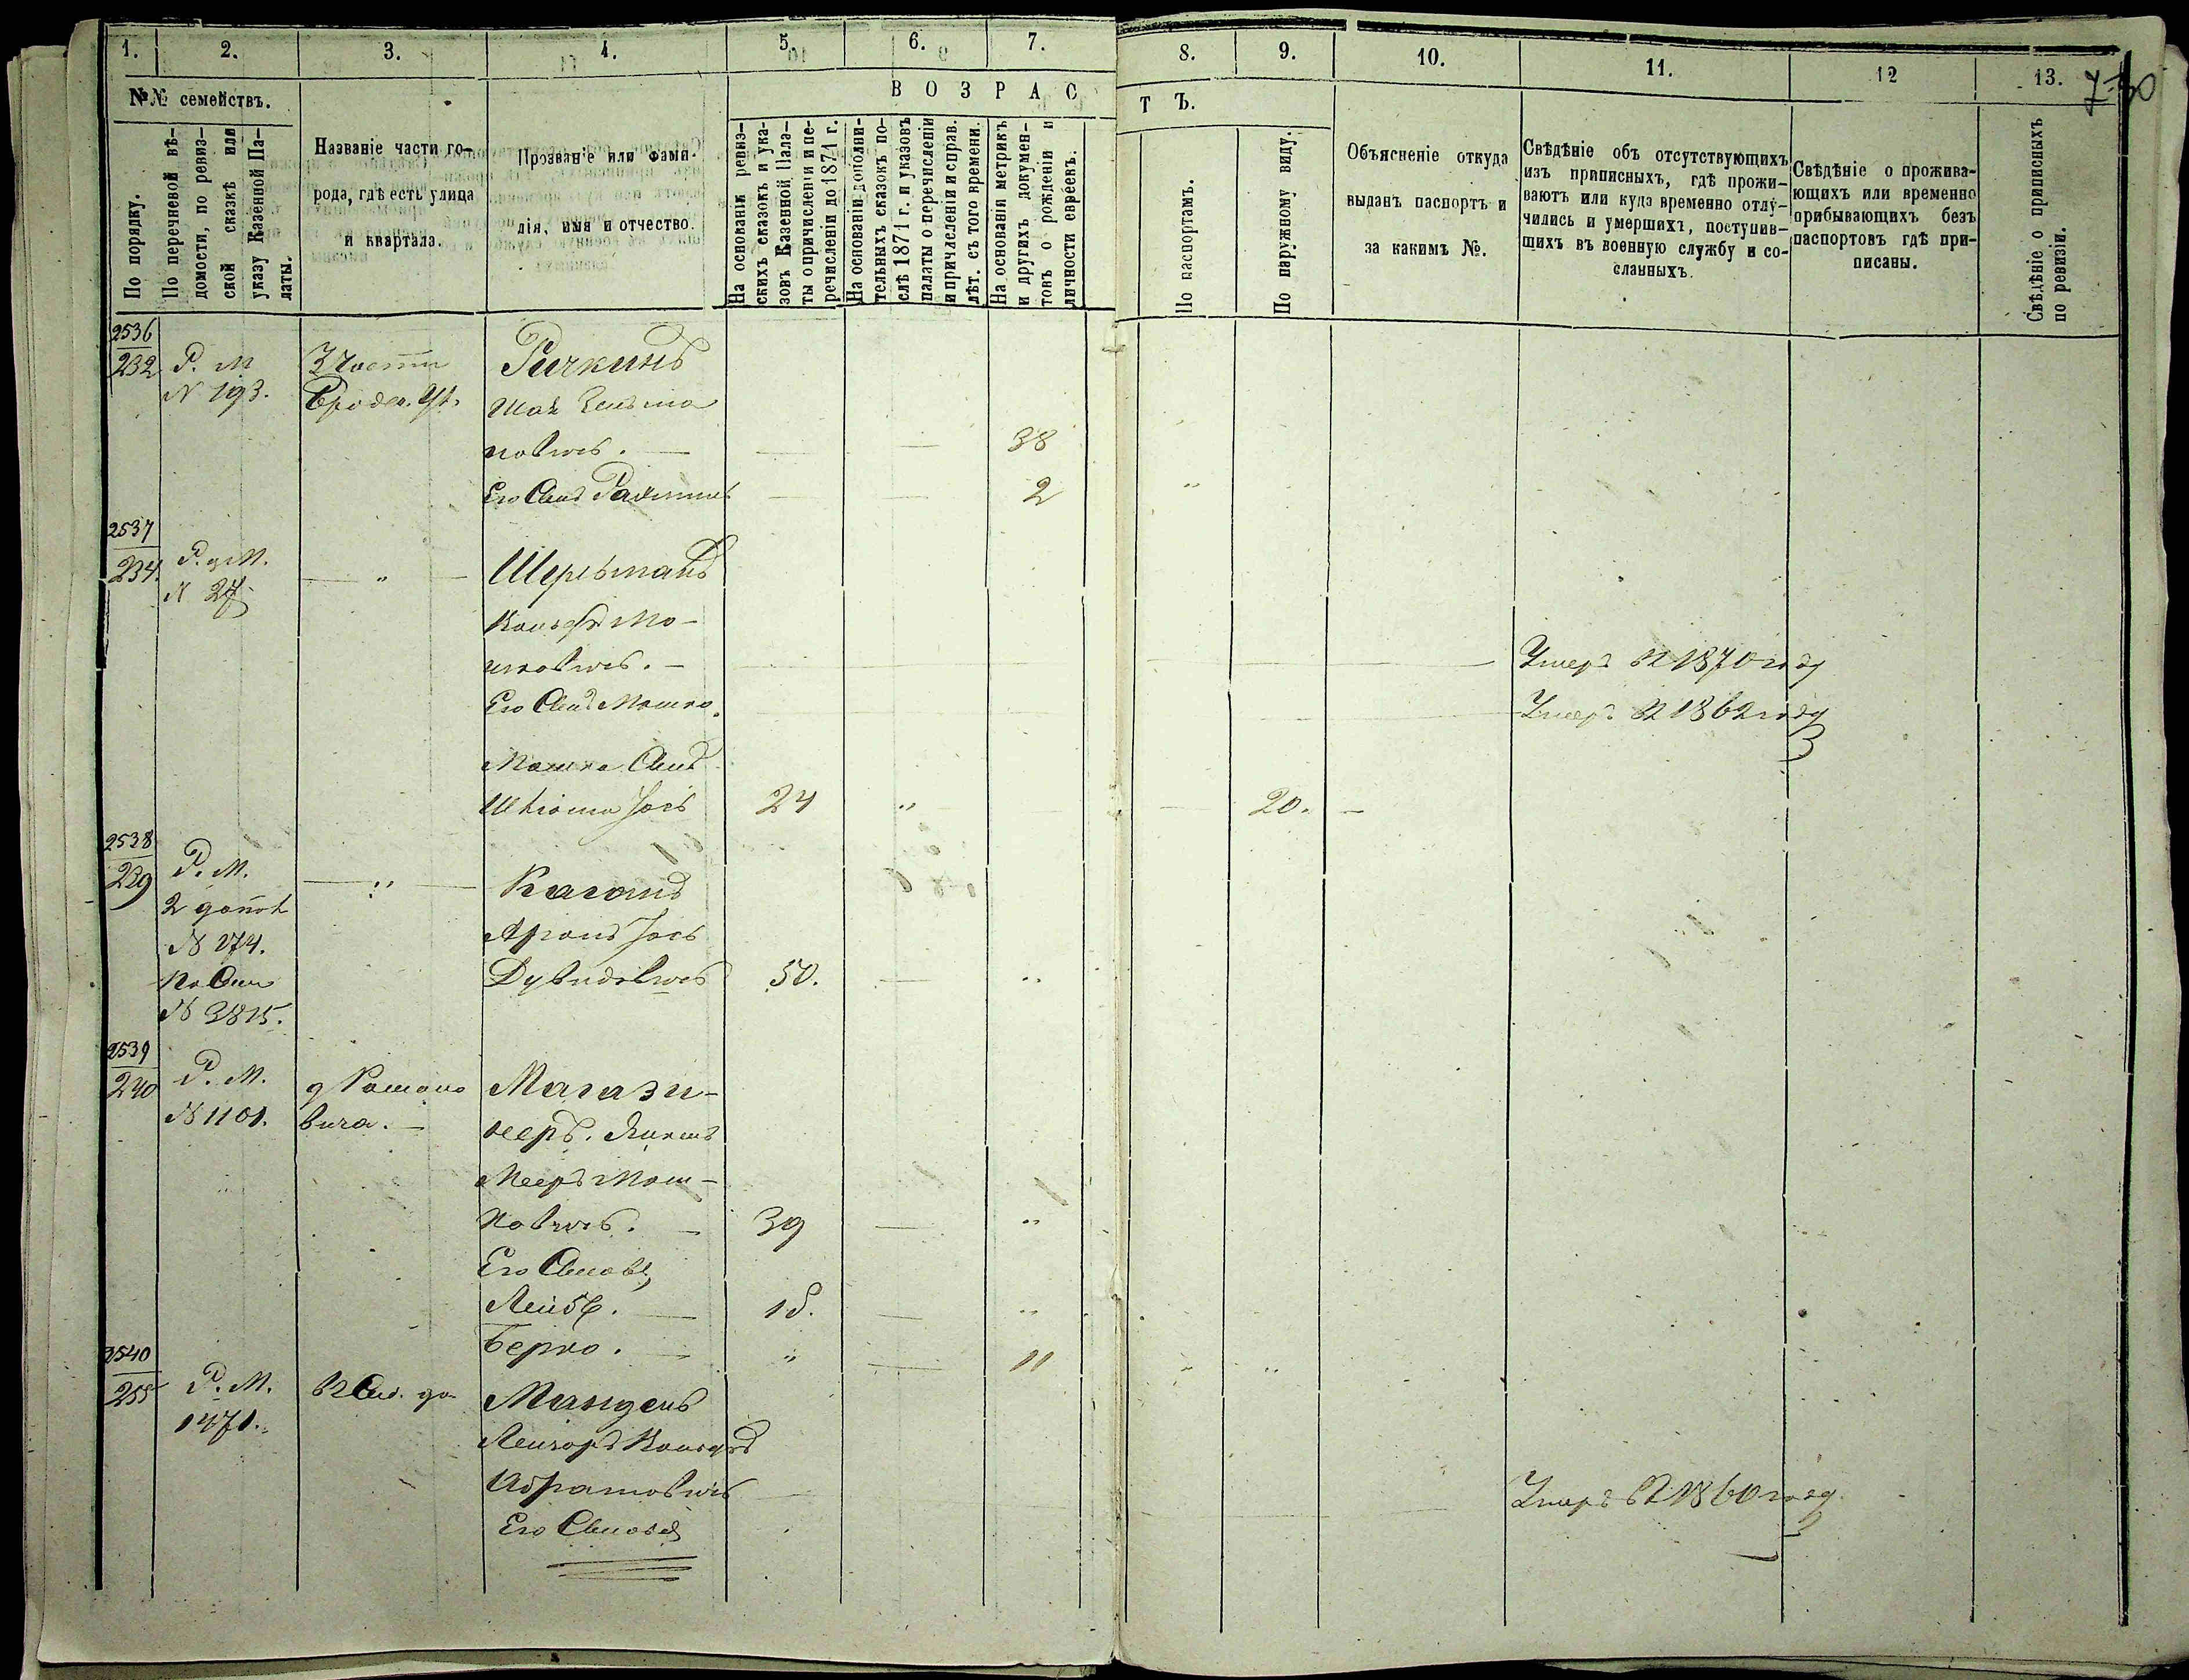 1. 2. 3. 4. 5. 6. 7. 8. 9. 10. 11. 12 13.
7-30
№№ семействъ.
По порядку.
По перечневой вѣ-
домости, по ревиз-
ской сказкѣ или
указу Казенной Па-
латы.
Названіе части го-
рода, гдѣ есть улица
и квартала.
Прозваніе или фами-
лія, имя и отчество.
ВОЗРАСТЪ.
На основаніи ревиз-
скихъ сказокъ и ука-
зовъ Казенной Пала-
ты о причисленіи и пе-
речисленіи до 1871 г.
На основаніи дополни-
тельныхъ сказокъ по-
слѣ 1871 г. и указовъ
палаты о перечисленіи
и причисленіи и справ.
лѣт. съ того времени.
На основаніи метрикъ
и другихъ докумен-
товъ о рожденіи и
личности евреекъ.
По паспортамъ.
По наружному виду.
Объясненіе откуда
выданъ паспортъ и
за какимъ №.
Свѣдѣніе объ отсутствующихъ
изъ приписныхъ, гдѣ прожи-
ваютъ или куда временно отлу-
чились и умершихъ, поступив-
шихъ въ военную службу и со-
сланныхъ.
Свѣдѣніе о прожива-
ющихъ или временно
прибывающихъ безъ
паспортовъ гдѣ при-
писаны.
Свѣдѣніе о приписныхъ
по ревизіи.
2536
232 Р. М 3 Части
N 193.
38
Его Сынъ 2
2537
234. N 27 Шерьманъ
Мо-
шковичъ. — Умеръ въ 1870 году
Его Сынъ Мошко. Умеръ въ 1862 году
Мошка Сынъ
Іось 24 20.
2538
239 Р. М. Каганъ
2 допол
N 274. Аронъ Іось
Дувидовичъ 50.
N 3815.
2539
240 Р. М. д Романо Магази-
N 1101. вича. — неръ.
Мееръ Мош-
ковичъ. 39
Его Сыновья
Лейба. 15.
Берко. 11
2540
255 Р. М. Мандель
1471.
Абрамовичъ Умеръ въ 1860 году
Его Сыновья